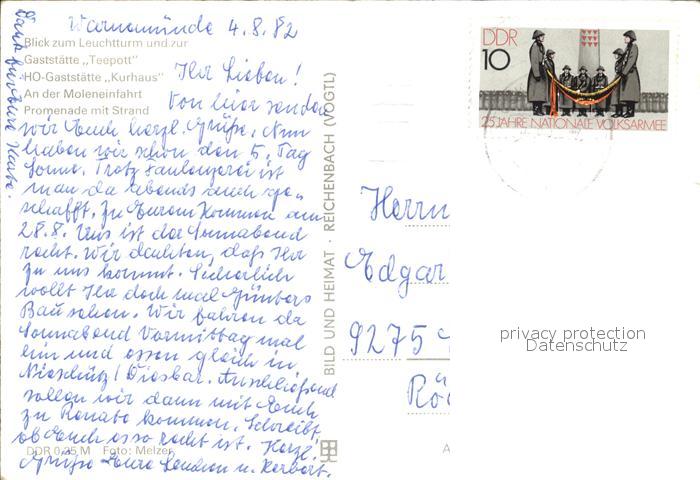 Warnemünde 4.8.82
Blick zum Leuchtturm und zur
Gaststätte „Teepott"
HO-Gaststätte „Kurhaus"
An der Moleneinfahrt
Promenade mit Strand
Ihr Lieben!
Von hier senden
wir Euch herzl. Grüße. Nun
haben wir schon den 5. Tag
Sonne. Trotz Faulenzerei ist
man da abends auch ge„
schafft. Zu Eurem Kommen am
28.8. Uns ist der Sonnabend
recht. Wir dachten, daß Ihr
zu uns kommt. Sicherlich
wollt Ihr doch mal Günters
Bau sehen. Wir fahren da
Sonnabend Vormittag mal
hin und essen gleich in
Nieschütz/Diesbar. Anschließend
sollen wir dann mit Euch
zu Renate kommen. Schreibt,
ob Euch es so recht ist. Herzl.
Grüße Eure u. Herbert.
Dank für Eure Karte.
DDR 0,25 M Foto: Melzer
BILD UND HEIMAT · REICHENBACH (VOGTL)
DDR
10
25 JAHRE NATIONALE VOLKSARMEE
Herrn
Edgar
9275
Rö
privacy protection
Datenschutz
A